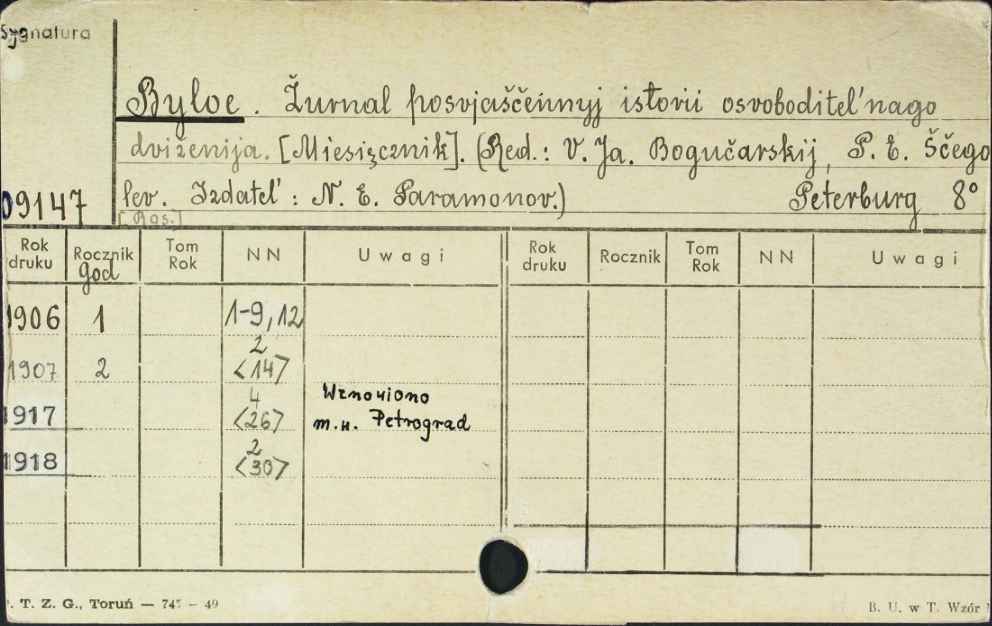 Sygnatura
Byloe. Žurnal posvjaščennyj istorii osvoboditel'nago
dviženija. [Miesięcznik]. (Red.: V. Ja. Bogučarskij, P. E. Ščego
lev. Izdatel': N. E. Paramonov.) Peterburg 8°
09147
[Ros.]
Rok druku Rocznik Tom Rok NN Uwagi Rok druku Rocznik Tom Rok NN Uwagi
god
1906 1 1-9, 12
1907 2 2 <14>
1917 4 <26> Wznowiono
m.w. Petrograd
1918 2 <30>
. T. Z. G., Toruń — 747 — 49 B. U. w T. Wzór